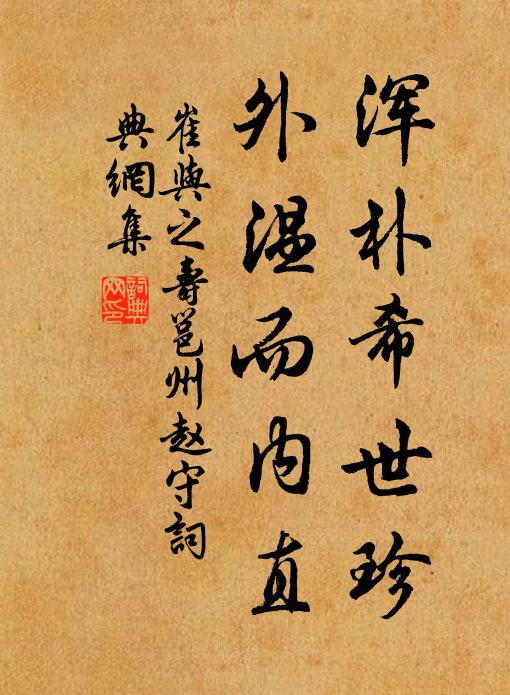 浑朴希世珍
外温而内直
崔与之寿邕州赵守词
典網集
詞典网印